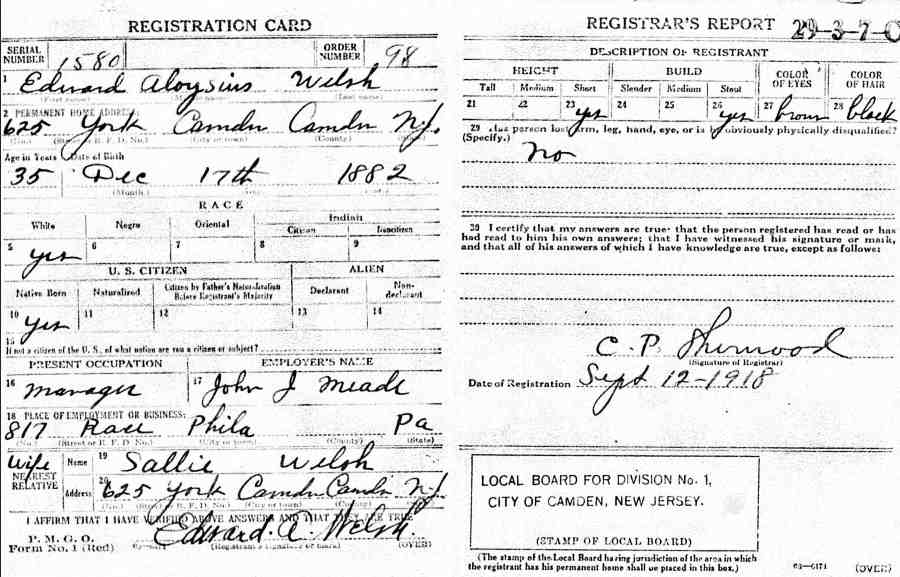 REGISTRATION CARD
SERIAL NUMBER 1580 ORDER NUMBER 98
1 Edward Aloysius Welsh
(First name) (Last name)
2 PERMANENT HOME ADDRESS:
625 York Camden Camden N.J.
(No.) (Street or R. F. D. No.) (City or town) (County) (State)
Age in Years Date of Birth
35 Dec 17th 1882
(Month.)
RACE
White Negro Oriental Indian
Citizen Noncitizen
5 yes 6 7 8 9
U. S. CITIZEN ALIEN
Native Born Naturalized Citizen by Father's Naturalization Before Registrant's Majority Declarant Non-declarant
10 yes 11 12 13 14
15
If not a citizen of the U. S., of what nation are you a citizen or subject?
PRESENT OCCUPATION EMPLOYER'S NAME
16 manager 17 John J Meade
18 PLACE OF EMPLOYMENT OR BUSINESS:
817 Race Phila Pa
(No.) (Street or R. F. D. No.) (City or town) (County) (State)
Wife Name 19 Sallie Welsh
NEAREST RELATIVE Address 20 625 York Camden Camden N.J.
(No.) (Street or R. F. D. No.) (City or town) (County) (State)
I AFFIRM THAT I HAVE VERIFIED ABOVE ANSWERS AND THAT THEY ARE TRUE
P. M. G. O.
Form No. 1 (Red) Edward. A. Welsh
(Registrant's signature or mark) (OVER)
REGISTRAR'S REPORT 29-3-7-C
DESCRIPTION OF REGISTRANT
HEIGHT BUILD COLOR OF EYES COLOR OF HAIR
Tall Medium Short Slender Medium Stout
21 22 23 yes 24 25 26 yes 27 brown 28 black
29 Has person lost arm, leg, hand, eye, or is he obviously physically disqualified?
(Specify.) No
30 I certify that my answers are true; that the person registered has read or has
had read to him his own answers; that I have witnessed his signature or mark,
and that all of his answers of which I have knowledge are true, except as follows:
C. P. Sherwood
(Signature of Registrar)
Date of Registration Sept 12-1918
LOCAL BOARD FOR DIVISION No. 1,
CITY OF CAMDEN, NEW JERSEY.
(STAMP OF LOCAL BOARD)
(The stamp of the Local Board having jurisdiction of the area in which
the registrant has his permanent home shall be placed in this box.) 03—6171 (OVER)